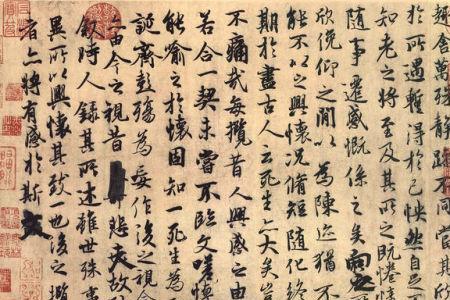 舍萬殊靜躁不同當其欣
於所遇蹔得於己怏然自足
知老之將至及其所之既惓情
隨事遷感慨係之矣向之
欣俛仰之閒以為陳迹猶不
能不以之興懷況脩短隨化終
期於盡古人云死生亦大矣豈
不痛哉每攬昔人興感之由
若合一契未嘗不臨文嗟悼
能喻之於懷固知一死生為
誕齊彭殤為妄作後之視今
亦由今之視昔悲夫故
敘時人錄其所述雖世殊事
異所以興懷其致一也後之攬
者亦將有感於斯文